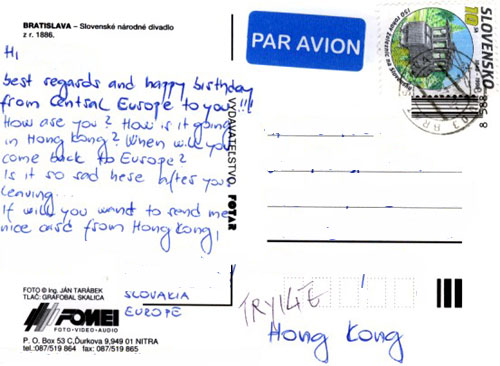 BRATISLAVA – Slovenské národné divadlo
z r. 1886.
Hi,
best regards and happy birthday
from Central Europe to you!!!
How are you? How is it going
in Hong Kong? When will you
come back to Europe?
Is it so sad here after you
leaving...
If will you want to send me
nice card from Hong Kong,
FOTO © Ing. JÁN TARÁBEK
TLAČ: GRAFOBAL SKALICA
SLOVAKIA
EUROPE
FOMEI
FOTO•VIDEO•AUDIO
P. O. Box 53 C,Ďurkova 9,949 01 NITRA
tel.:087/519 864 fax: 087/519 865
VYDAVATEĽSTVO FOTAR
PAR AVION
SLOVENSKO
10
Sk
TRY14E
Hong Kong